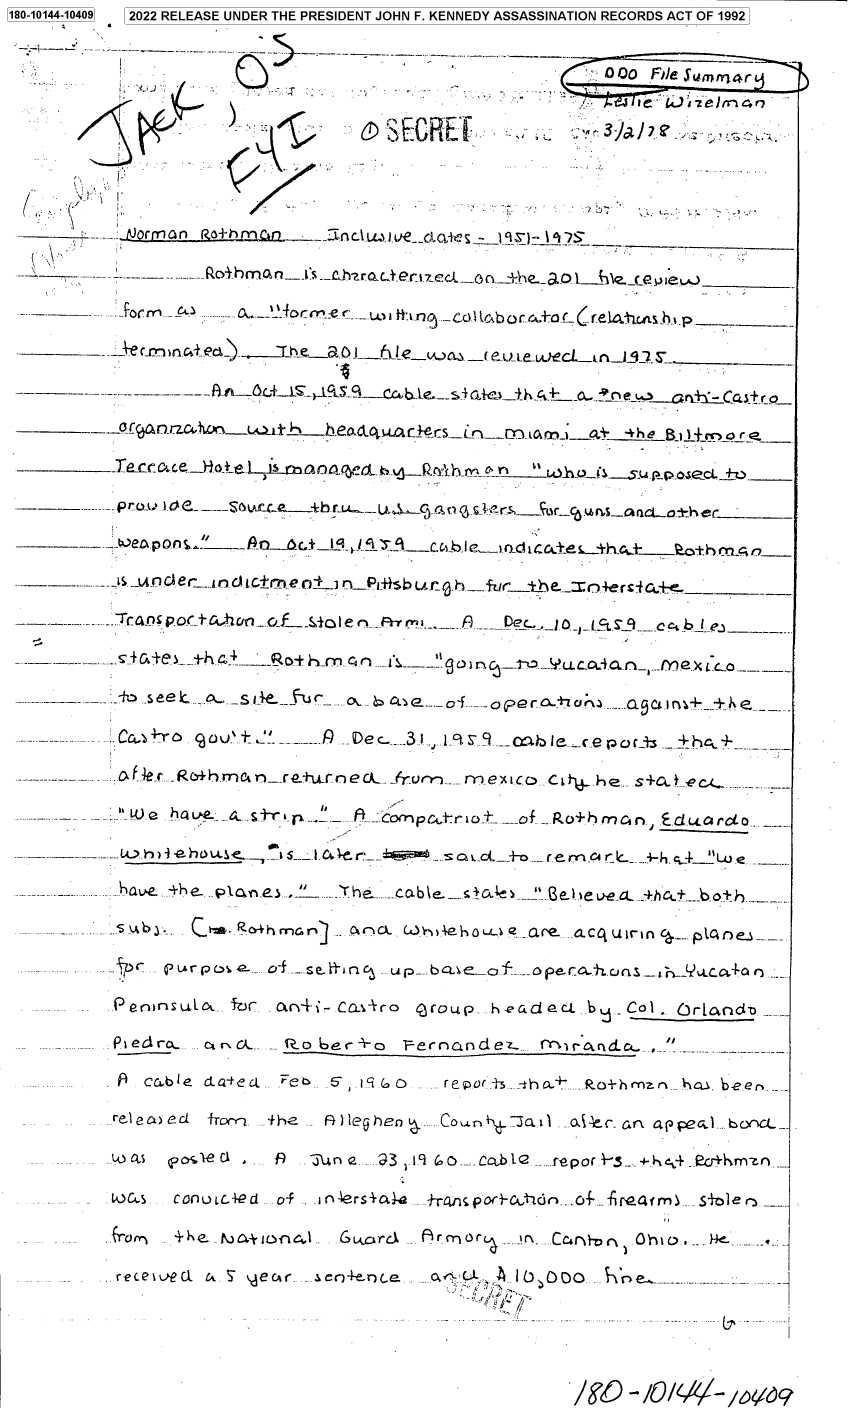 180-10144-10409
2022 RELEASE UNDER THE PRESIDENT JOHN F. KENNEDY ASSASSINATION RECORDS ACT OF 1992
JACK, OS
FYI
DDO File Summary
Leslie Wizelman
① SECRET
3/2/78
Norman Rothman Inclusive dates - 1951-1975
Rothman is characterized on the 201 file review
form as a "former witting collaborator (relationship
terminated). The 201 file was reviewed in 1975.
An Oct 15, 1959 cable states that a new anti-Castro
organization with headquarters in Miami at the Biltmore
Terrace Hotel, is managed by Rothman "who is supposed to
provide source thru U.S. gangsters for guns and other
weapons." An Oct 19, 1959 cable indicates that Rothman
is under indictment in Pittsburgh for the Interstate
Transportation of Stolen Arms. A Dec. 10, 1959 cables
states that Rothman is "going to Yucatan, Mexico
to seek a site for a base of operations against the
Castro gov't." A Dec 31, 1959 cable reports that
after Rothman returned from Mexico City he stated
"We have a strip." A compatriot of Rothman, Eduardo
Whitehouse, is later said to remark that "we
have the planes." The cable states "Believed that both
subj. [Rothman] and Whitehouse are acquiring planes
for purpose of setting up base of operations in Yucatan
Peninsula for anti-Castro group headed by Col. Orlando
Piedra and Roberto Fernandez Miranda."
A cable dated Feb 5, 1960 reports that Rothman has been
released from the Allegheny County Jail after an appeal bond
was posted. A June 23, 1960 cable reports that Rothman
was convicted of interstate transportation of firearms stolen
from the National Guard Armory in Canton, Ohio. He
received a 5 year sentence and $10,000 fine
SECRET
180-10144-10409